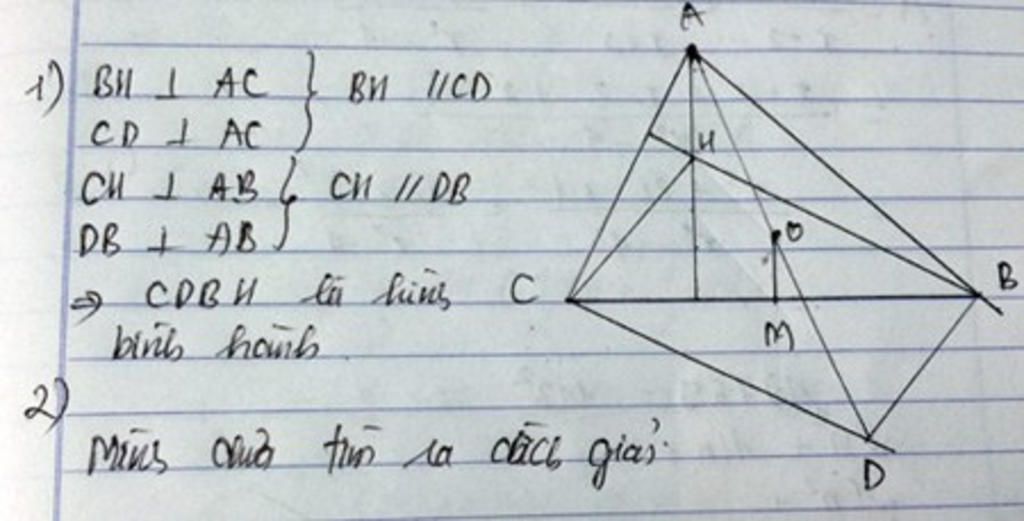 1) BH ⊥ AC } BH // CD
CD ⊥ AC
CH ⊥ AB } CH // DB
DB ⊥ AB
⇒ CDBH là hình
bình hành
2)
Mình chưa tìm ra cách giải.
A
H
O
C
B
M
D